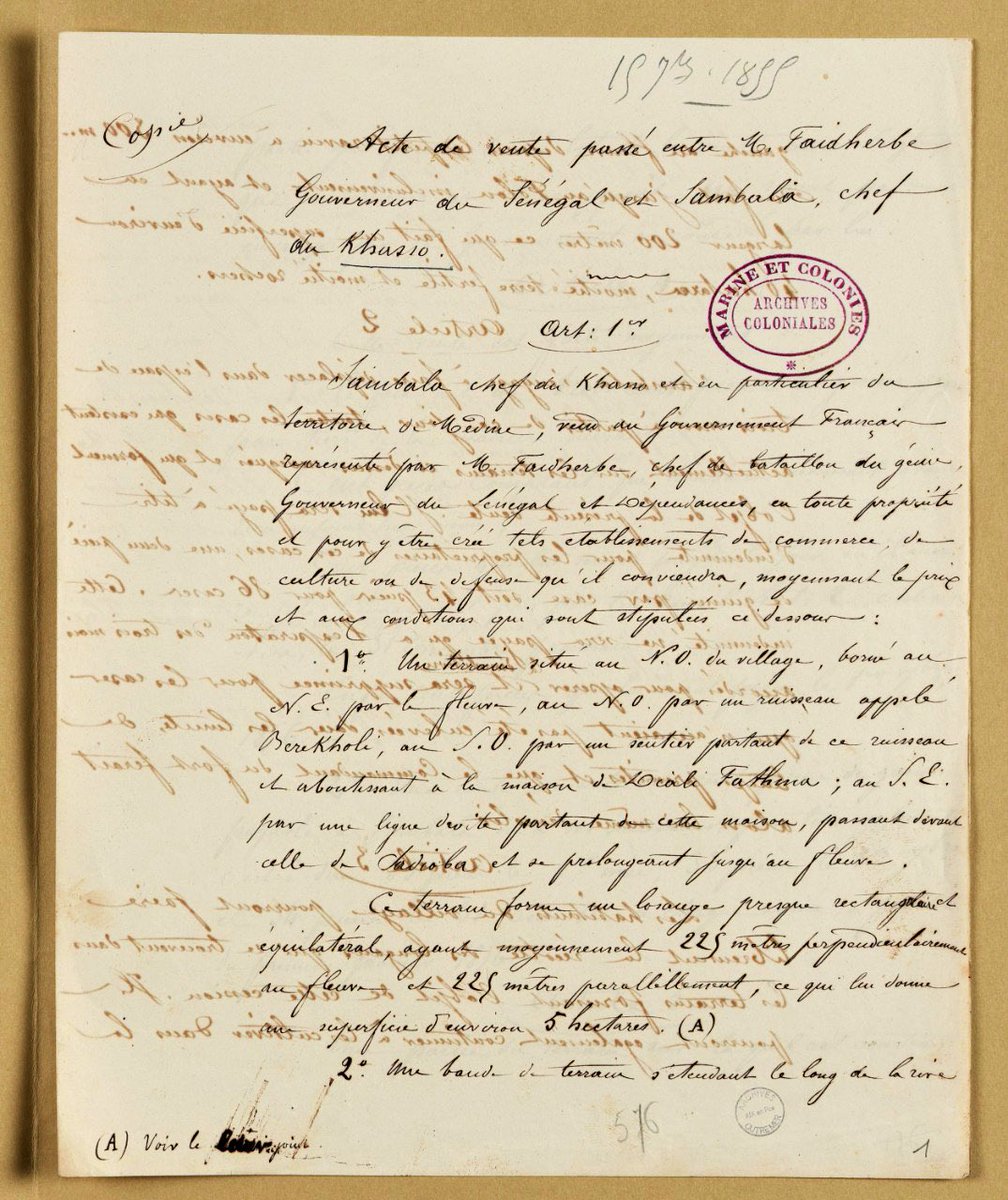 15 7bre 1855
Copie
Acte de vente passé entre M. Faidherbe
Gouverneur du Sénégal et Sambala, chef
du Khasso.
MARINE ET COLONIES
ARCHIVES
COLONIALES
Art: 1er
Sambala chef du Khasso et en particulier du
territoire de Médine, vend au Gouvernement Français
représenté par M. Faidherbe, chef de bataillon du génie,
Gouverneur du Sénégal et Dépendances, en toute propriété
et pour y être créé tels établissements de commerce, de
culture ou de défense qu'il conviendra, moyennant le prix
et aux conditions qui sont stipulées ci dessous :
1o. Un terrain situé au N.O. du village, borné au
N.E. par le fleuve, au N.O. par un ruisseau appelé
Berekholi, au S.O. par un sentier partant de ce ruisseau
et aboutissant à la maison de Deali Fathma ; au S.E.
par une ligne droite partant de cette maison, passant devant
celle de Sadioba et se prolongeant jusqu'au fleuve.
Ce terrain forme un losange presque rectangulaire et
équilatéral, ayant moyennement 225 mètres perpendiculairement
au fleuve et 225 mètres parallèllement, ce qui lui donne
une superficie d'environ 5 hectares. (A)
2o. Une bande de terrain s'étendant le long de la rive
(A) Voir le
576
ARCHIVES
OUTREMER
1